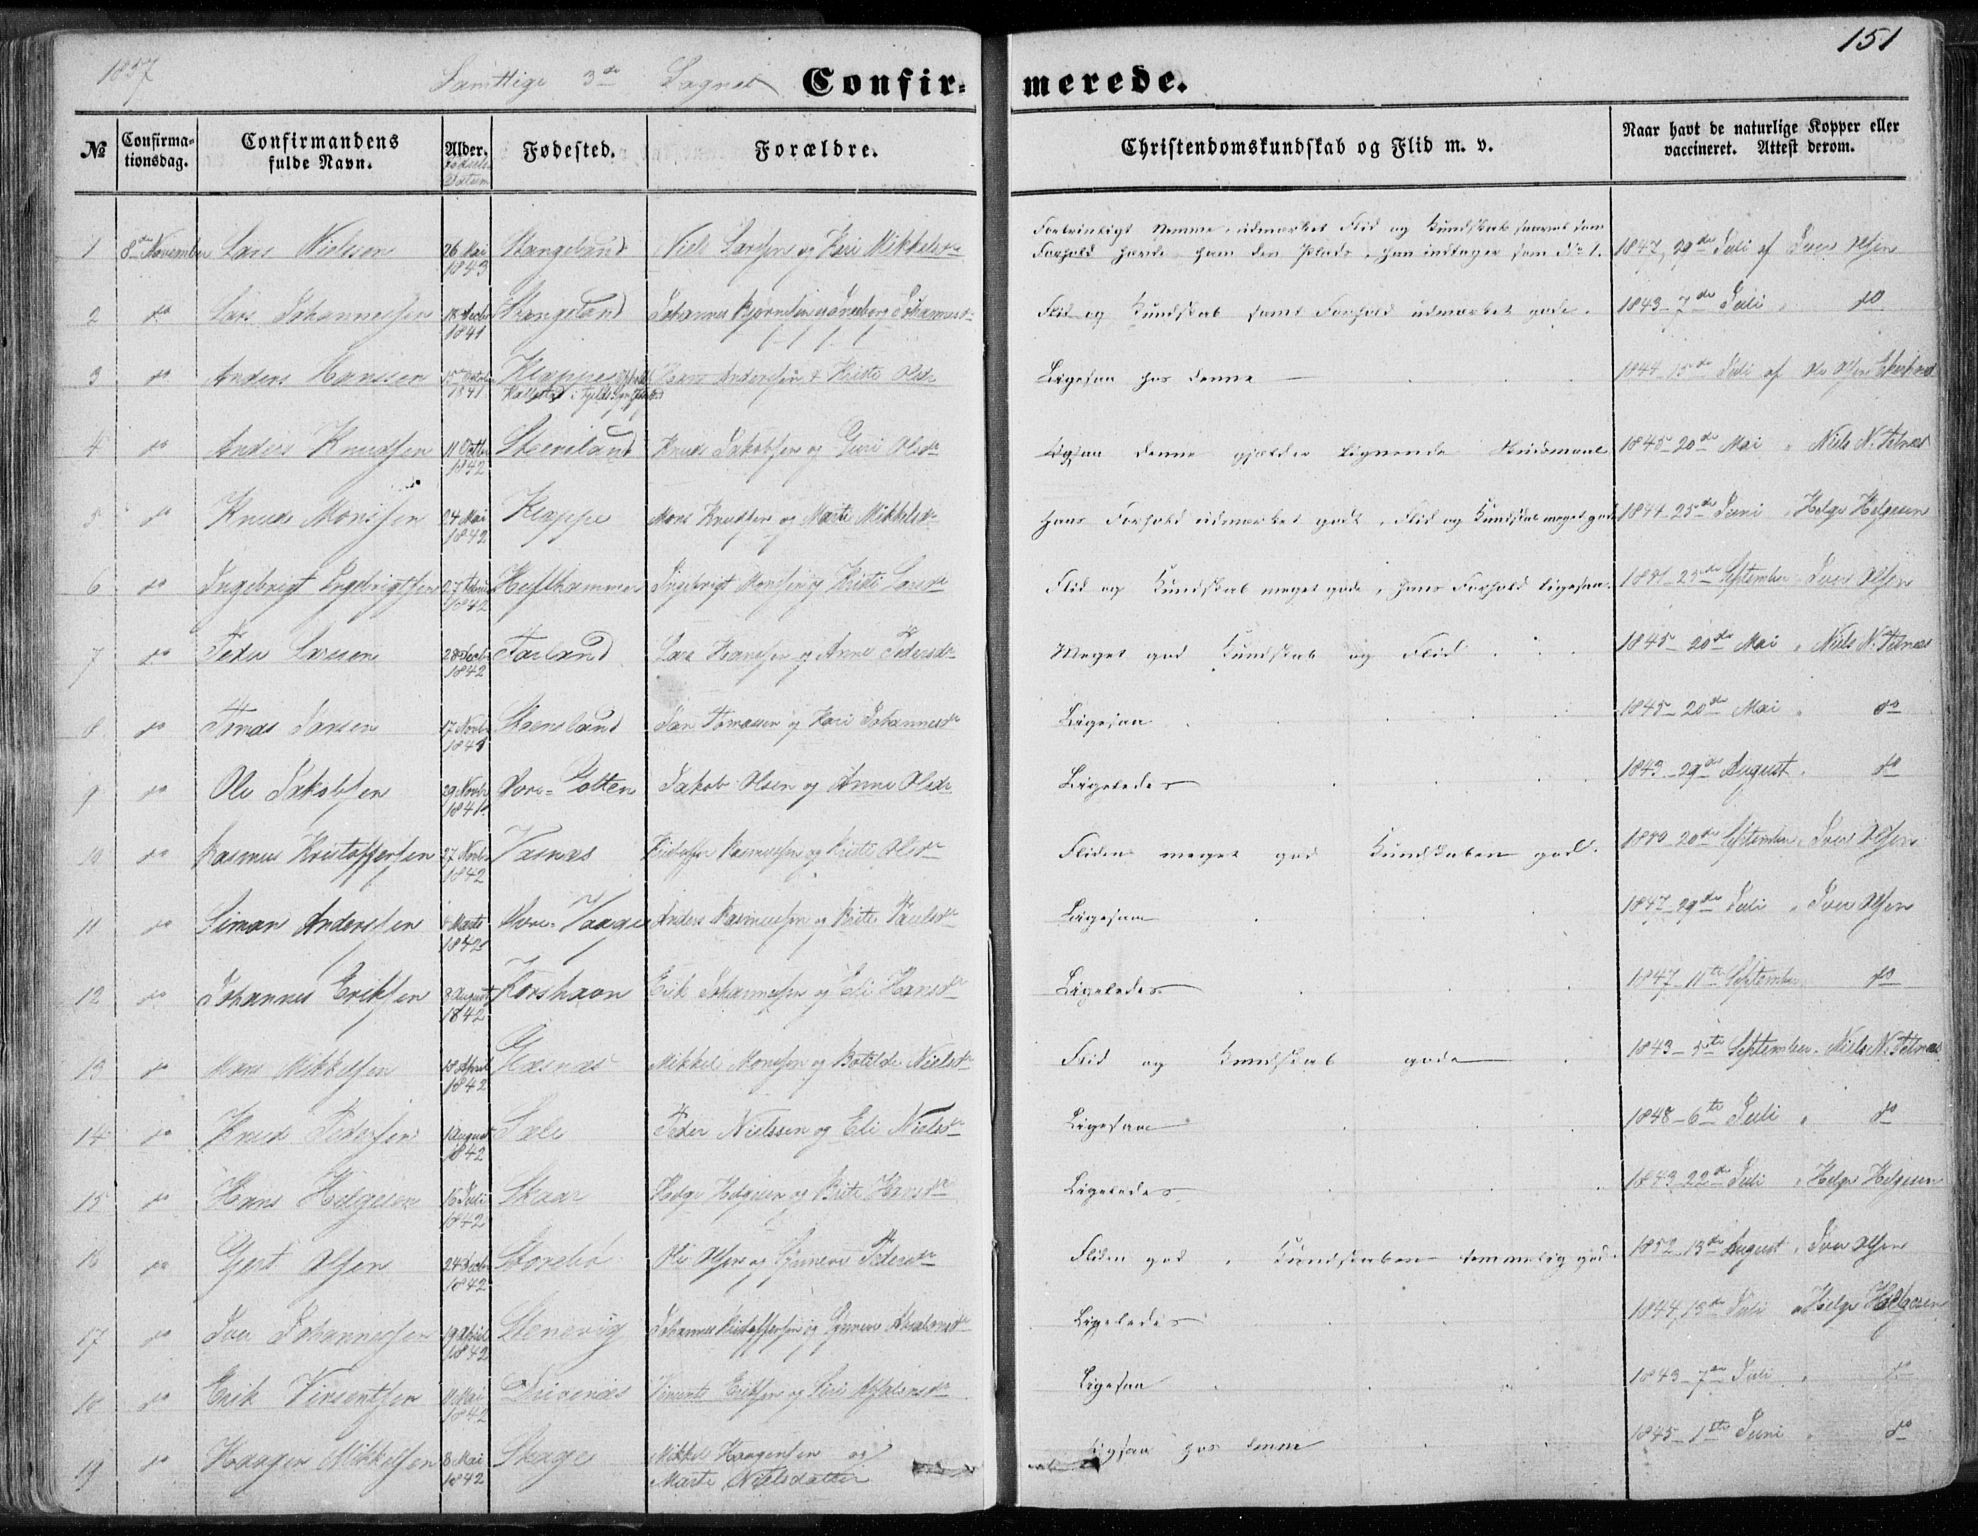 1857 Samttlige 3de Sognet Confir- merede. 151
No Confirma-tionsdag. Confirmandens fulde Navn. Alder. Fødsels Datum Fødested. Forældre. Christendomskundskab og Flid m. v. Naar havt de naturlige Kopper eller vaccineret. Attest derom.
1 8de November Lars Nielsen 26 Mai 1843 Stangeland Niels Larssen og Kari Mikkelsdr Fortrinligt Nemme, udmærket Flid og Kundskab saavelsom Forhold hævde ham den Plads, han indtager som No 1. 1847, 29de Juli af Iver Olsen
2 do Lars Johannessen 18 Decbr 1841 Stangeland Johannes Bjørnsen Johannesdr Flid og Kundskab samt Forhold udmærket gode. 1843 - 7de Juli " do
3 do Anders Hanssen 15 October 1841 Kleppe Hans Anderssen & Brite Olsdr Ligesaa hos denne 1844 - 15de Juli af Ole Olsen
4 do Anders Knudssen 11 Octbr 1842 Steensland Knud Jakobsen og Guri Olsdr Ligesaa denne gjælder lignende Skudsmaal 1845 - 20de Mai " Niels N. Telnæs
5 do Knud Monssen 24 Mai 1842 Kleppe Mons Knudsen og Marte Mikkelsdr Hans Forhold udmærket godt, Flid og Kundskab meget god 1844 - 25de Juni " Helge Helgesen
6 do Ingebrigt Ingebrigtsen 27 1842 Hufthammer Ingebrigt Monssen og Brite Larsdr Flid og Kundskab meget gode, hans Forhold ligesaa. 1851 - 25de September " Iver Olsen
7 do Peder Larsen 28 Decbr 1842 Færland Lars Hanssen og Anne Pedersdr Meget god Kundskab og Flid 1845 - 20de Mai " Niels N. Telnæs
8 do Tomas Jansen 17 Novbr 1841 Steensland Jan Tomassen og Kari Johannesdr Ligesaa 1845 - 20de Mai " do
9 do Ole Jakobsen 29 Novbr 1841 Øvre-Potten Jakob Olsen og Anne Olsdr Ligeledes 1843 - 29de August " do
10 do Rasmus Kristoffersen 27 Novbr 1842 Vasnæs Kristoffer Rasmussen og Brite Olsdr Fliden meget god Kundskaben god. 1850 - 20de September " Iver Olsen
11 do Simon Anderssen Marts 1842 Øvre-Vaage Anders Rasmussen og Brite Paulsdr Ligesaa 1847 - 29de Juli " Iver Olsen
12 do Johannes Eriksen 8 August 1842 Korshavn Erik Johannessen og Eli Hansdr Ligeledes 1847 - 11te September " do
13 do Mons Mikkelsen 18 April 1842 Glæsnæs Mikkel Monssen og Botilde Nielsdr Flid og Kundskab gode 1843 - 5te September " Niels N. Telnæs
14 do Knud Pedersen 1 August 1842 Sele Peder Nielssen og Eli Nielsdr Ligesaa 1848 - 6te Juli " do
15 do Hans Helgesen 16 Juli 1842 Skaar Helge Helgesen og Brite Hansdr Ligeledes 1843 - 22de Juli " Helge Helgesen
16 do Gjert Olsen 24 Decbr 1842 Storebø Ole Olsen og Synneve Pedersdr Fliden god, Kundskaben temmelig god 1852 - 13de August " Iver Olsen
17 do Iver Johannessen 19 April 1842 Stenevig Johannes Kristoffersen og Synneve Absalonsdr Ligeledes 1844, 15de Juli " Helge Helgesen
18 do Erik Vinsentsen 11 Mai 1842 Drivenæs Vinsents Eriksen og Siri Absalonsdr Ligesaa 1843 - 7de Juli " do
19 do Haagen Mikkelsen 8 Mai 1842 Skage Mikkel Haagensen og Ligesaa hos denne 1845 - 1ste Juni " do
Marte Nielsdatter